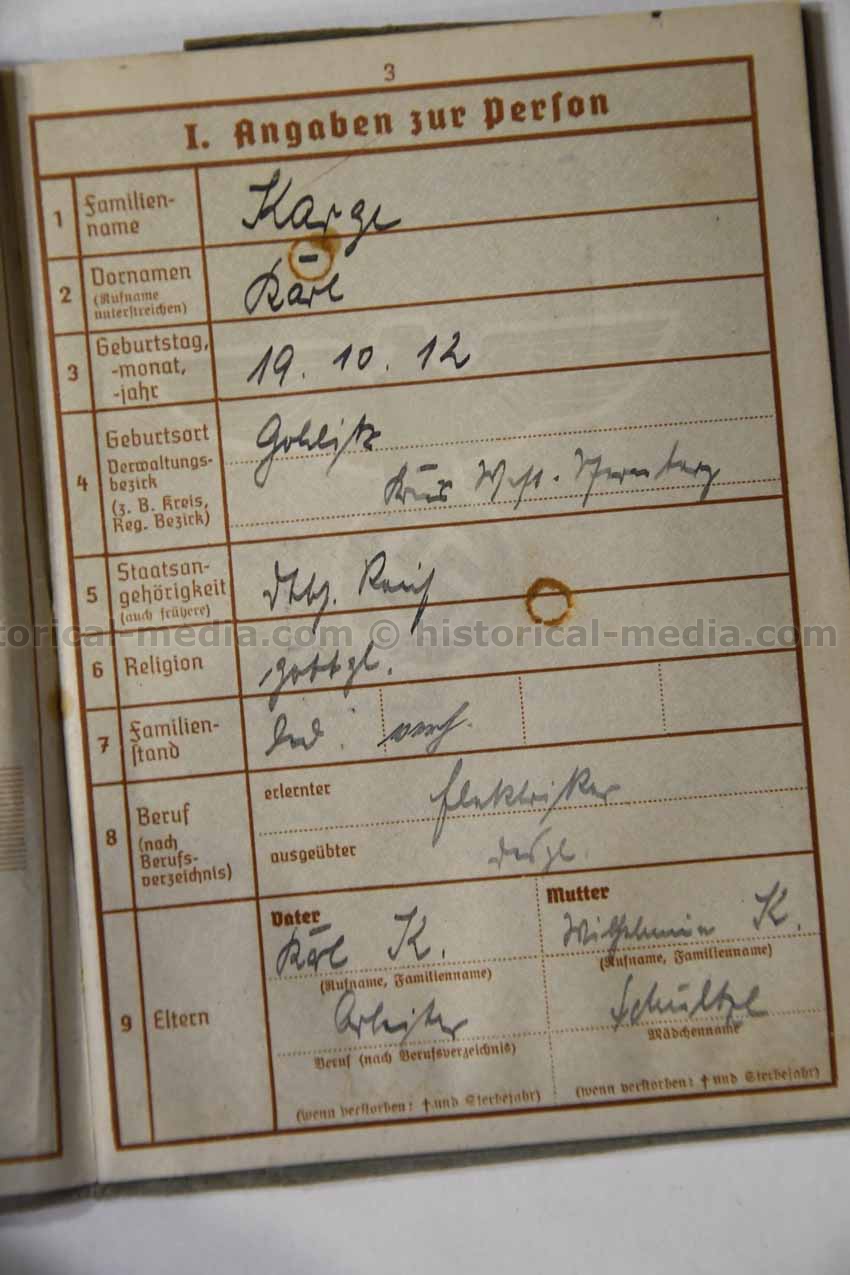 3
I. Angaben zur Person
1 Familien-
name
Karge
2 Vornamen
(Rufname
unterstreichen)
Karl
3 Geburtstag,
-monat,
-jahr
19. 10. 12
4 Geburtsort
Verwaltungs-
bezirk
(z. B. Kreis,
Reg. Bezirk)
Kreis West-Sternberg
5 Staatsan-
gehörigkeit
(auch frühere)
Reich
historical-media.com © historical-media.com
6 Religion
gottgl.
7 Familien-
stand
led. verh.
8 Beruf
(nach
Berufs-
verzeichnis)
erlernter
Elektriker
ausgeübter
desgl.
9 Eltern
Vater
Karl K.
(Rufname, Familienname)
Arbeiter
Beruf (nach Berufsverzeichnis)
(wenn verstorben: † und Sterbejahr)
Mutter
Wilhelmine K.
(Rufname, Familienname)
Mädchenname
(wenn verstorben: † und Sterbejahr)